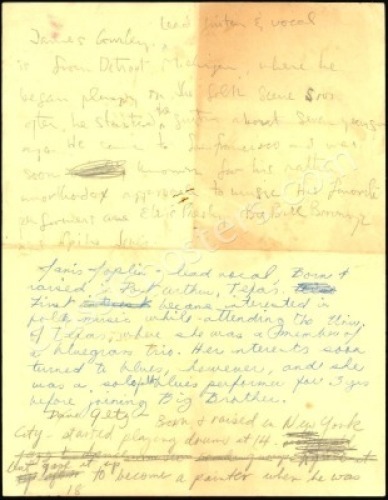 lead guitar & vocal
James Gurley
is from Detroit Michigan, where he
began playing on the folk scene soon
after he started the guitar about seven years
ago. He came to San Francisco and was
soon known for his rather
unorthodox approach to music. His favorite
performers are Elvis Presley, Big Bill Broonzy
and Spike Jones
Janis Joplin - lead vocal Born &
raised in Port Arthur, Texas.
First became interested in
folk music while attending the Univ.
of Texas, where she was a member of
a bluegrass trio. Her interests soon
turned to blues, however, and she
was a solo blues performer for 3 yrs
before joining Big Brother.
Dave Getz - Born & raised in New York
City - started playing drums at 14.
but gave it up
to become a painter when he was
18